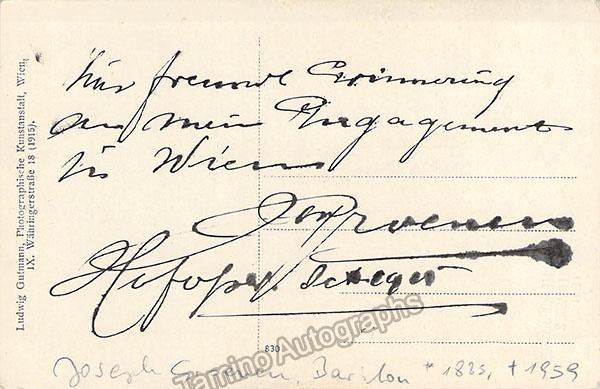 Zur freundl Erinnerung
an mein Engagement
in Wien
Jos Groenen
Hofopernsänger
Ludwig Gutmann, Photographische Kunstanstalt, Wien,
IX. Währingerstraße 18 (1915).
830
Tamino Autographs
Joseph Groenen, Bariton * 1885, † 1959